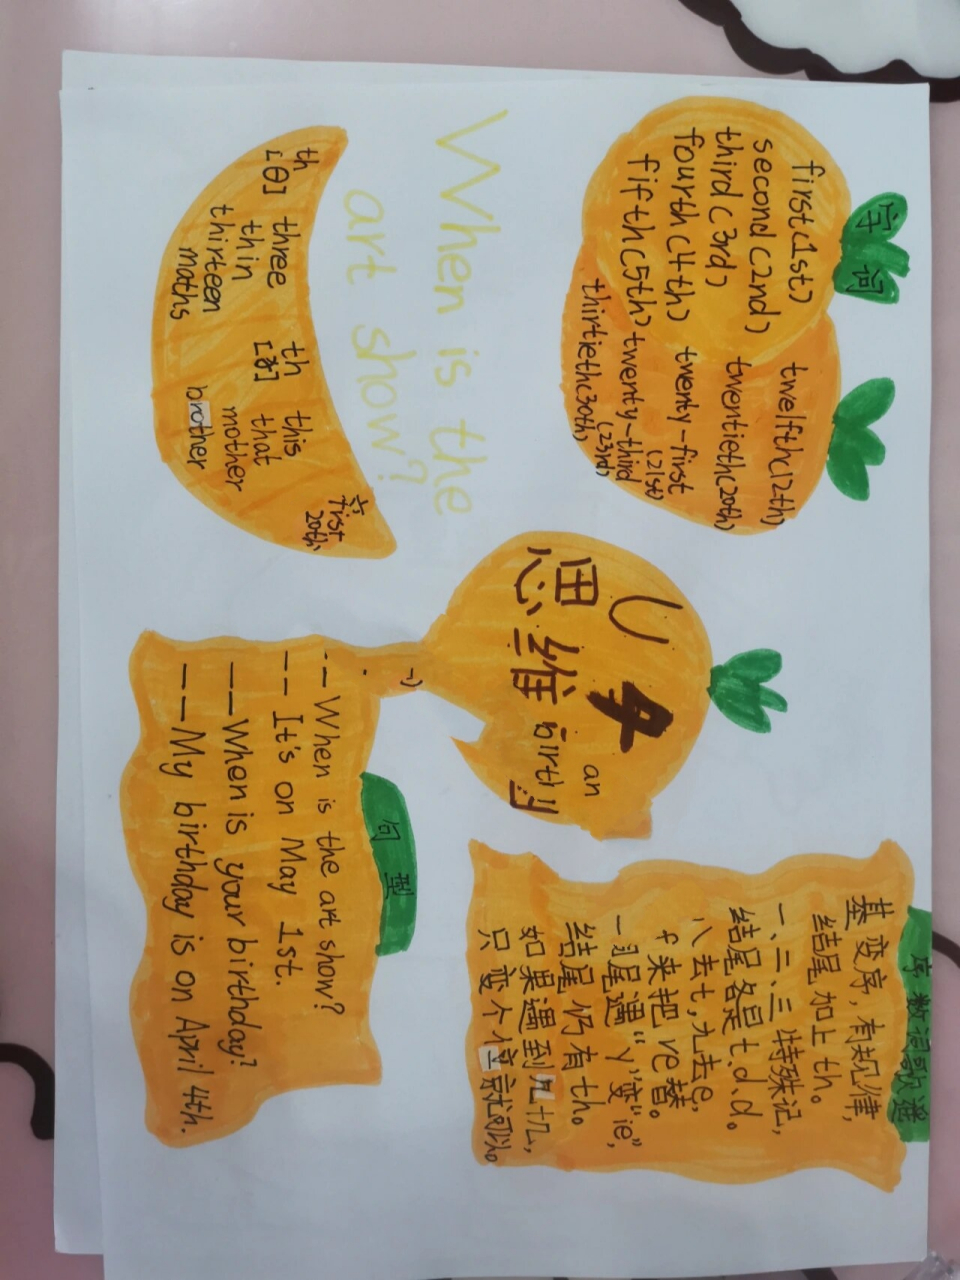 字词
first(1st)
second(2nd)
third(3rd)
fourth(4th)
fifth(5th)
twelfth(12th)
twentieth(20th)
twenty-first
(21st)
twenty-third
(23rd)
thirtieth(30th)
When is the
art show?
th
[θ]
three
thin
thirteen
maths
th
[ð]
this
that
mother
brother
first
20th
U4
思维
an
birth
序数词歌谣
基变序，有规律，
结尾加上th。
一、二、三特殊记，
结尾各是t.d.d。
八去t，九去e，
f来把ve替。
尾遇“y”变“ie”，
结尾仍有th。
如果遇到几十几，
只变个位就可以。
句型
--When is the art show?
--It's on May 1st.
--When is your birthday?
--My birthday is on April 4th.